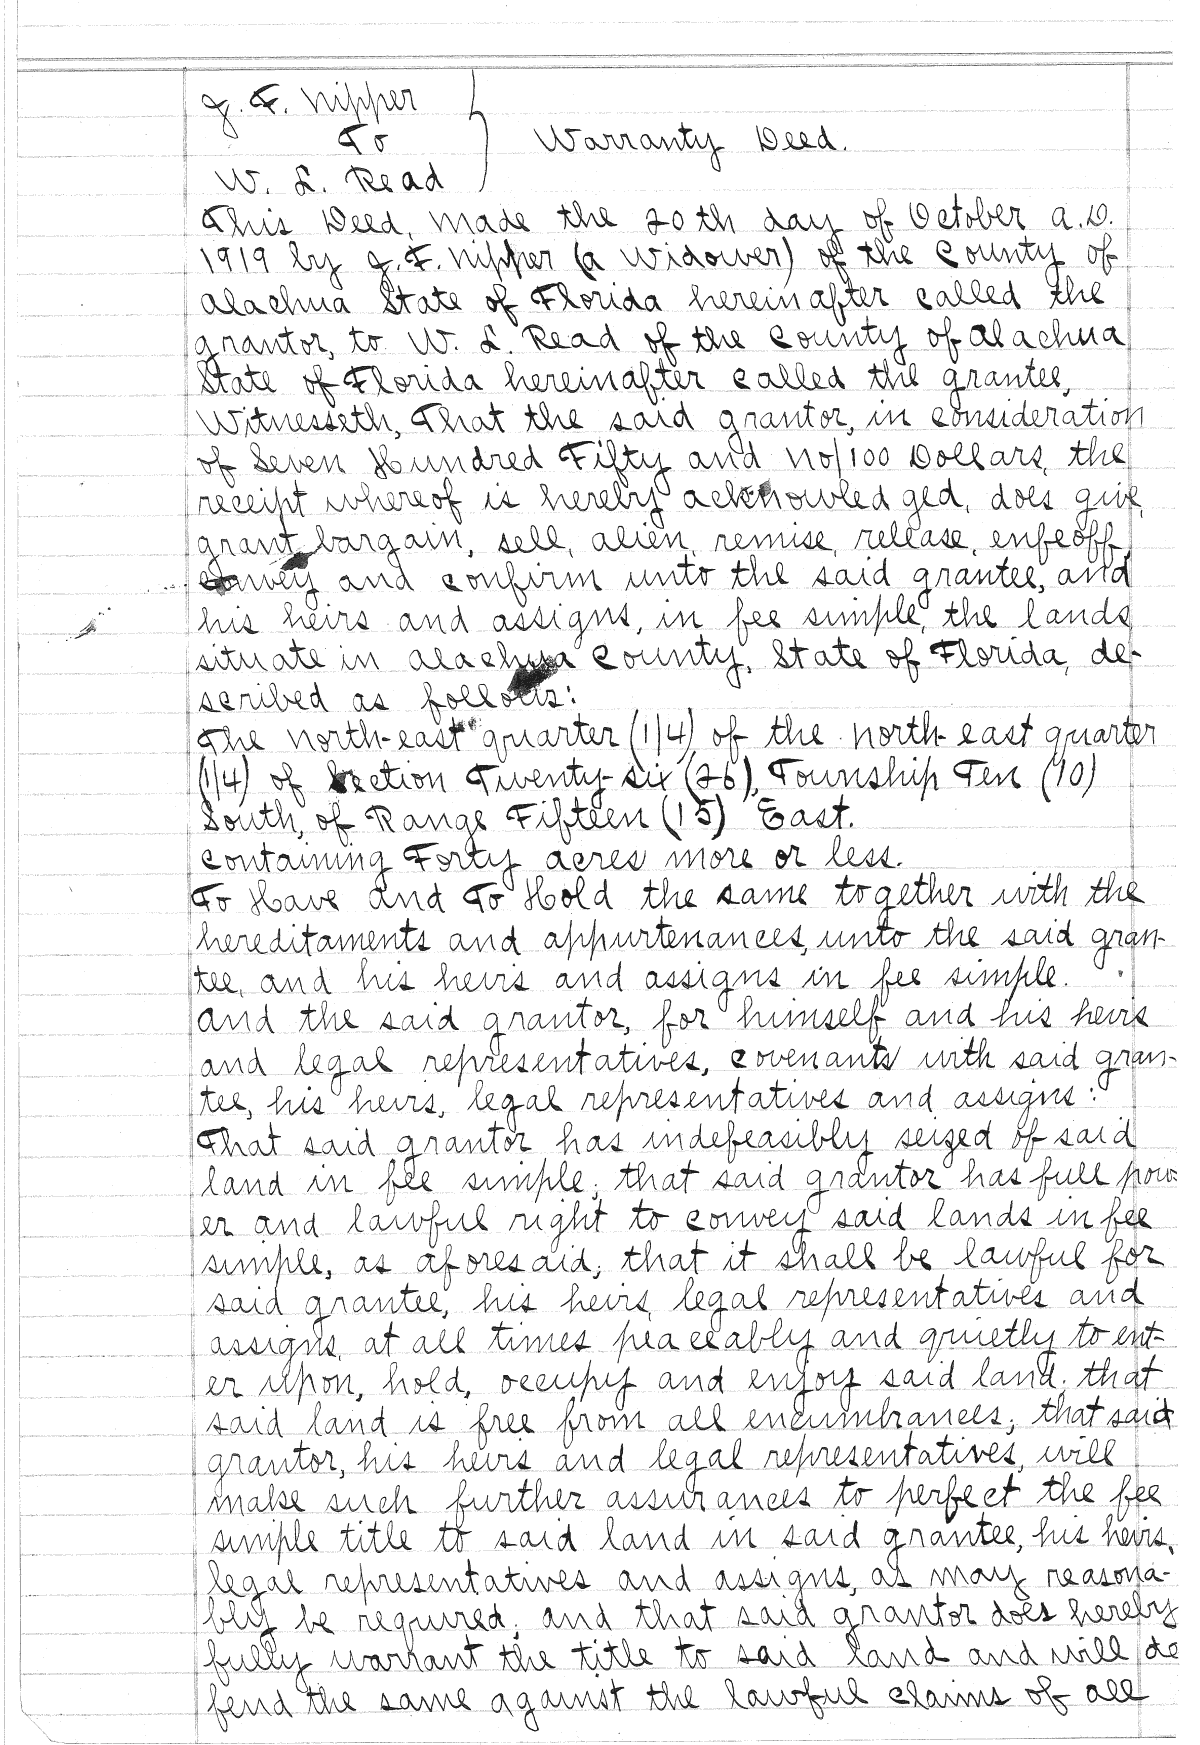 J. F. Nipper
To
Warranty Deed.
W. L. Read
This Deed, made the 20th day of October A.D.
1919 by J. F. Nipper (a widower) of the County of
Alachua State of Florida hereinafter called the
grantor, to W. L. Read of the County of Alachua
State of Florida hereinafter called the grantee,
Witnesseth, That the said grantor, in consideration
of Seven Hundred Fifty and no/100 Dollars, the
receipt whereof is hereby acknowledged, does give,
grant, bargain, sell, alien, remise, release, enfeoff,
convey and confirm unto the said grantee, and
his heirs and assigns, in fee simple, the lands
situate in Alachua County, State of Florida, de-
scribed as follows:
The north-east quarter (1/4) of the north-east quarter
(1/4) of Section Twenty-six (26), Township Ten (10)
South, of Range Fifteen (15) East.
Containing Forty acres more or less.
To Have and To Hold the same together with the
hereditaments and appurtenances, unto the said gran-
tee, and his heirs and assigns in fee simple.
And the said grantor, for himself and his heirs
and legal representatives, covenants with said gran-
tee, his heirs, legal representatives and assigns:
That said grantor has indefeasibly seized of said
land in fee simple; that said grantor has full pow
er and lawful right to convey said lands in fee
simple, as aforesaid; that it shall be lawful for
said grantee, his heirs, legal representatives and
assigns, at all times peaceably and quietly to ent-
er upon, hold, occupy and enjoy said land; that
said land is free from all encumbrances; that said
grantor, his heirs and legal representatives, will
make such further assurances to perfect the fee
simple title to said land in said grantee, his heirs,
legal representatives and assigns, as may reasona-
bly be required; and that said grantor does hereby
fully warrant the title to said land and will de
fend the same against the lawful claims of all